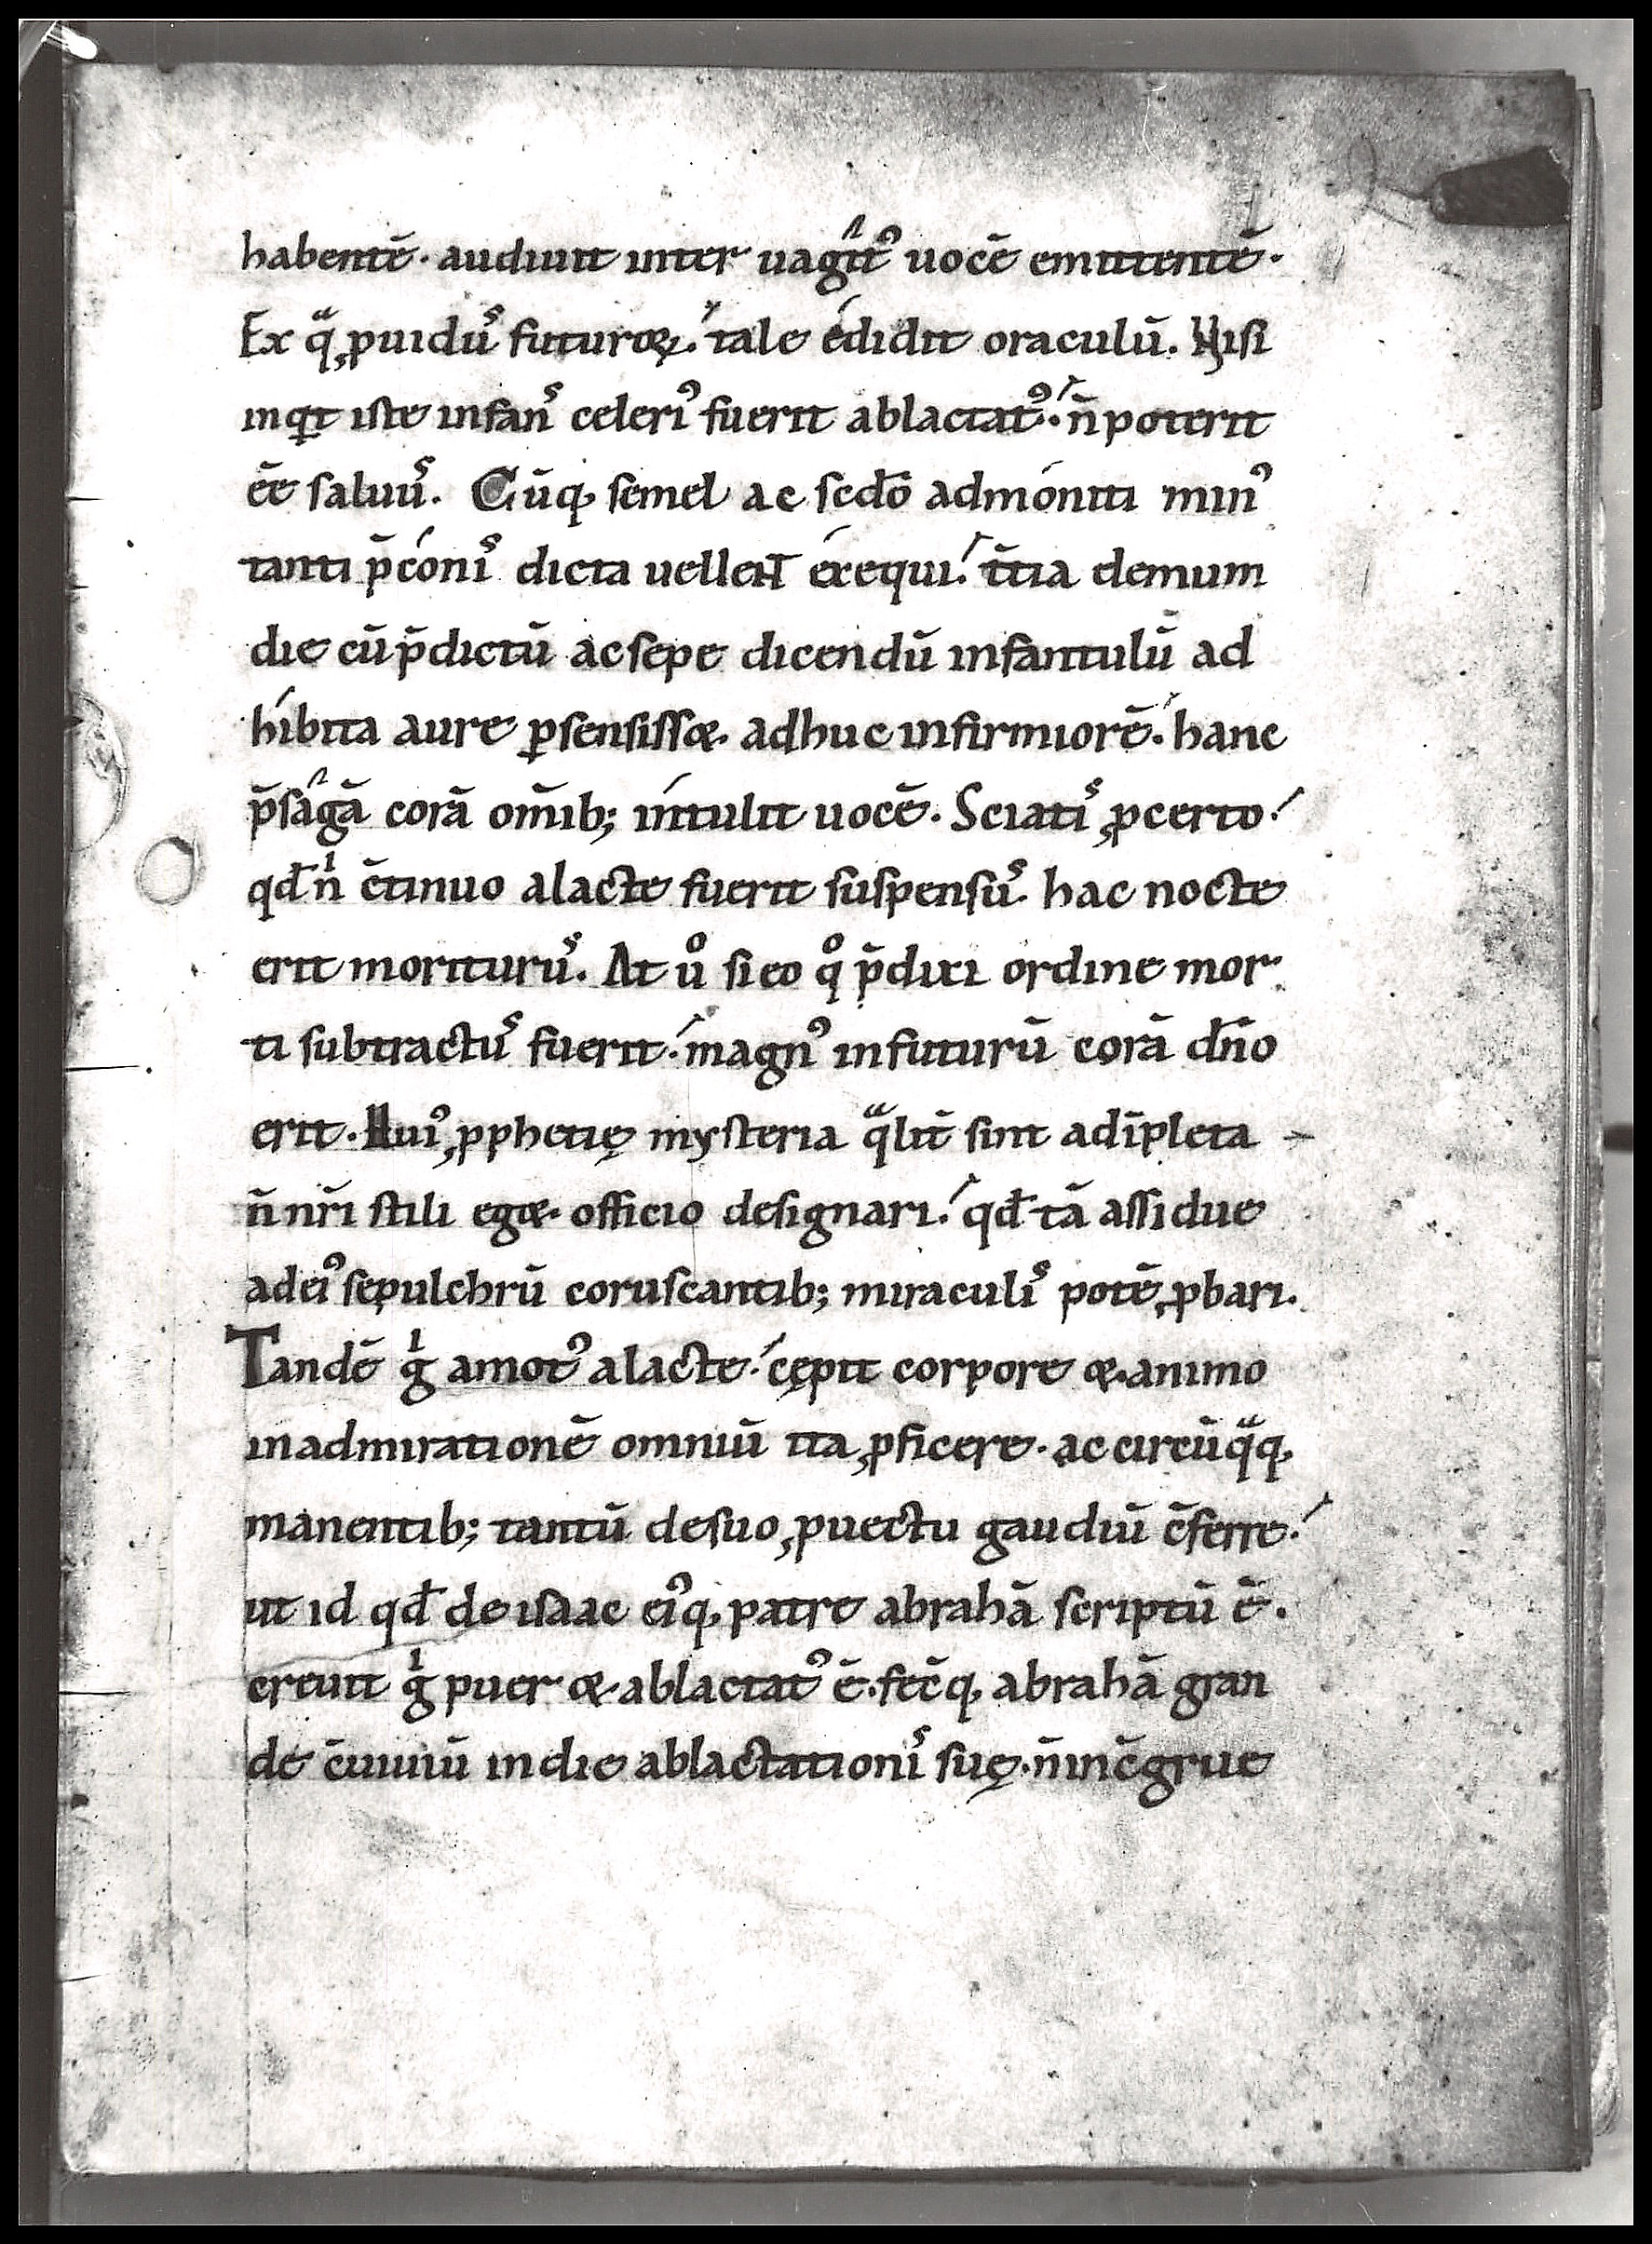 habentē. audiuit inter uagit᷒ uocē emittentē.
Ex qͣ ꝓuidus futuroꝝ. tale edidit oraculū. Nisi
inqͥt iste infans celeri᷒ fuerit ablactat᷒. n̄ poterit
ēē saluus. Cūq; semel ac scdō admoniti min᷒
tanti p̄conis dicta uellent exequi. t̄tia demum
die cū p̄dictū ac sepe dicendū infantulū ad
hibita aure ꝑsensiss&. adhuc infirmiorē. hanc
p̄sagā corā om̄ib; intulit uocē. Sciatis ꝓ certo
qd̄ nͥ c̄tinuo a lacte fuerit suspensus. hac nocte
erit moriturus. At uͦ si eo qͦ p̄dixi ordine mor
ti subtractus fuerit. magn᷒ in futurū corā dn̄o
erit. Hui᷒ ꝓphetię mysteria qͣlit̄ sint adīpleta
n̄ nr̄i stili eg&. officio designari. qd̄ tā assidue
ad ei᷒ sepulchrū coruscantib; miraculis potē ꝓbari.
Tandē gͥ amot᷒ a lacte. cępit corpore &. animo
in admirationē omniū ita ꝓficere. ac circūqͣq;
manentib; tantū de suo ꝓuectu gaudiū c̄ferre.
ut id qd̄ de isaac ei᷒q; patre abrahā scriptū ē.
creuit gͥ puer & ablactat᷒ ē. fec̄q; abrahā gran
de c̄uiuiū in die ablactationis suę. n̄ inc̄grue